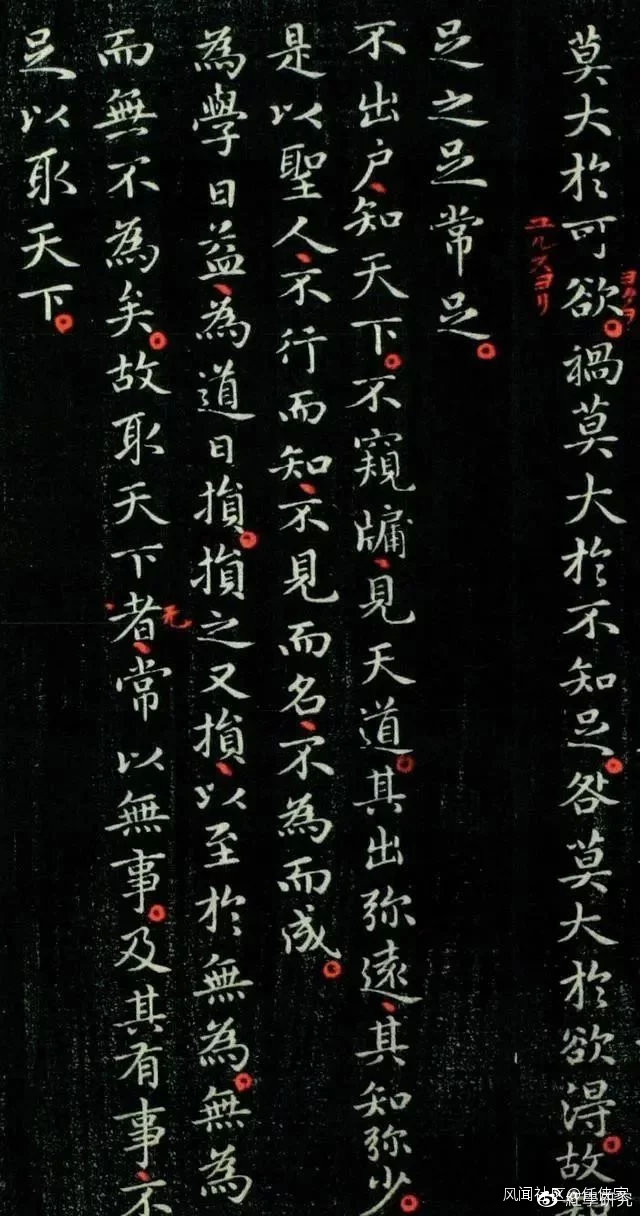 莫大於可欲。禍莫大於不知足。咎莫大於欲得。故
足之足常足。
不出户、知天下。不窺牖、見天道。其出弥遠、其知弥少。
是以聖人、不行而知、不見而名、不為而成。
為學日益、為道日損。損之又損、以至於無為。無為
而無不為矣。故取天下者、常以無事。及其有事、不
足以取天下。
ヨクヲ
ユルスヨリ
无
风闻社区@任侠客